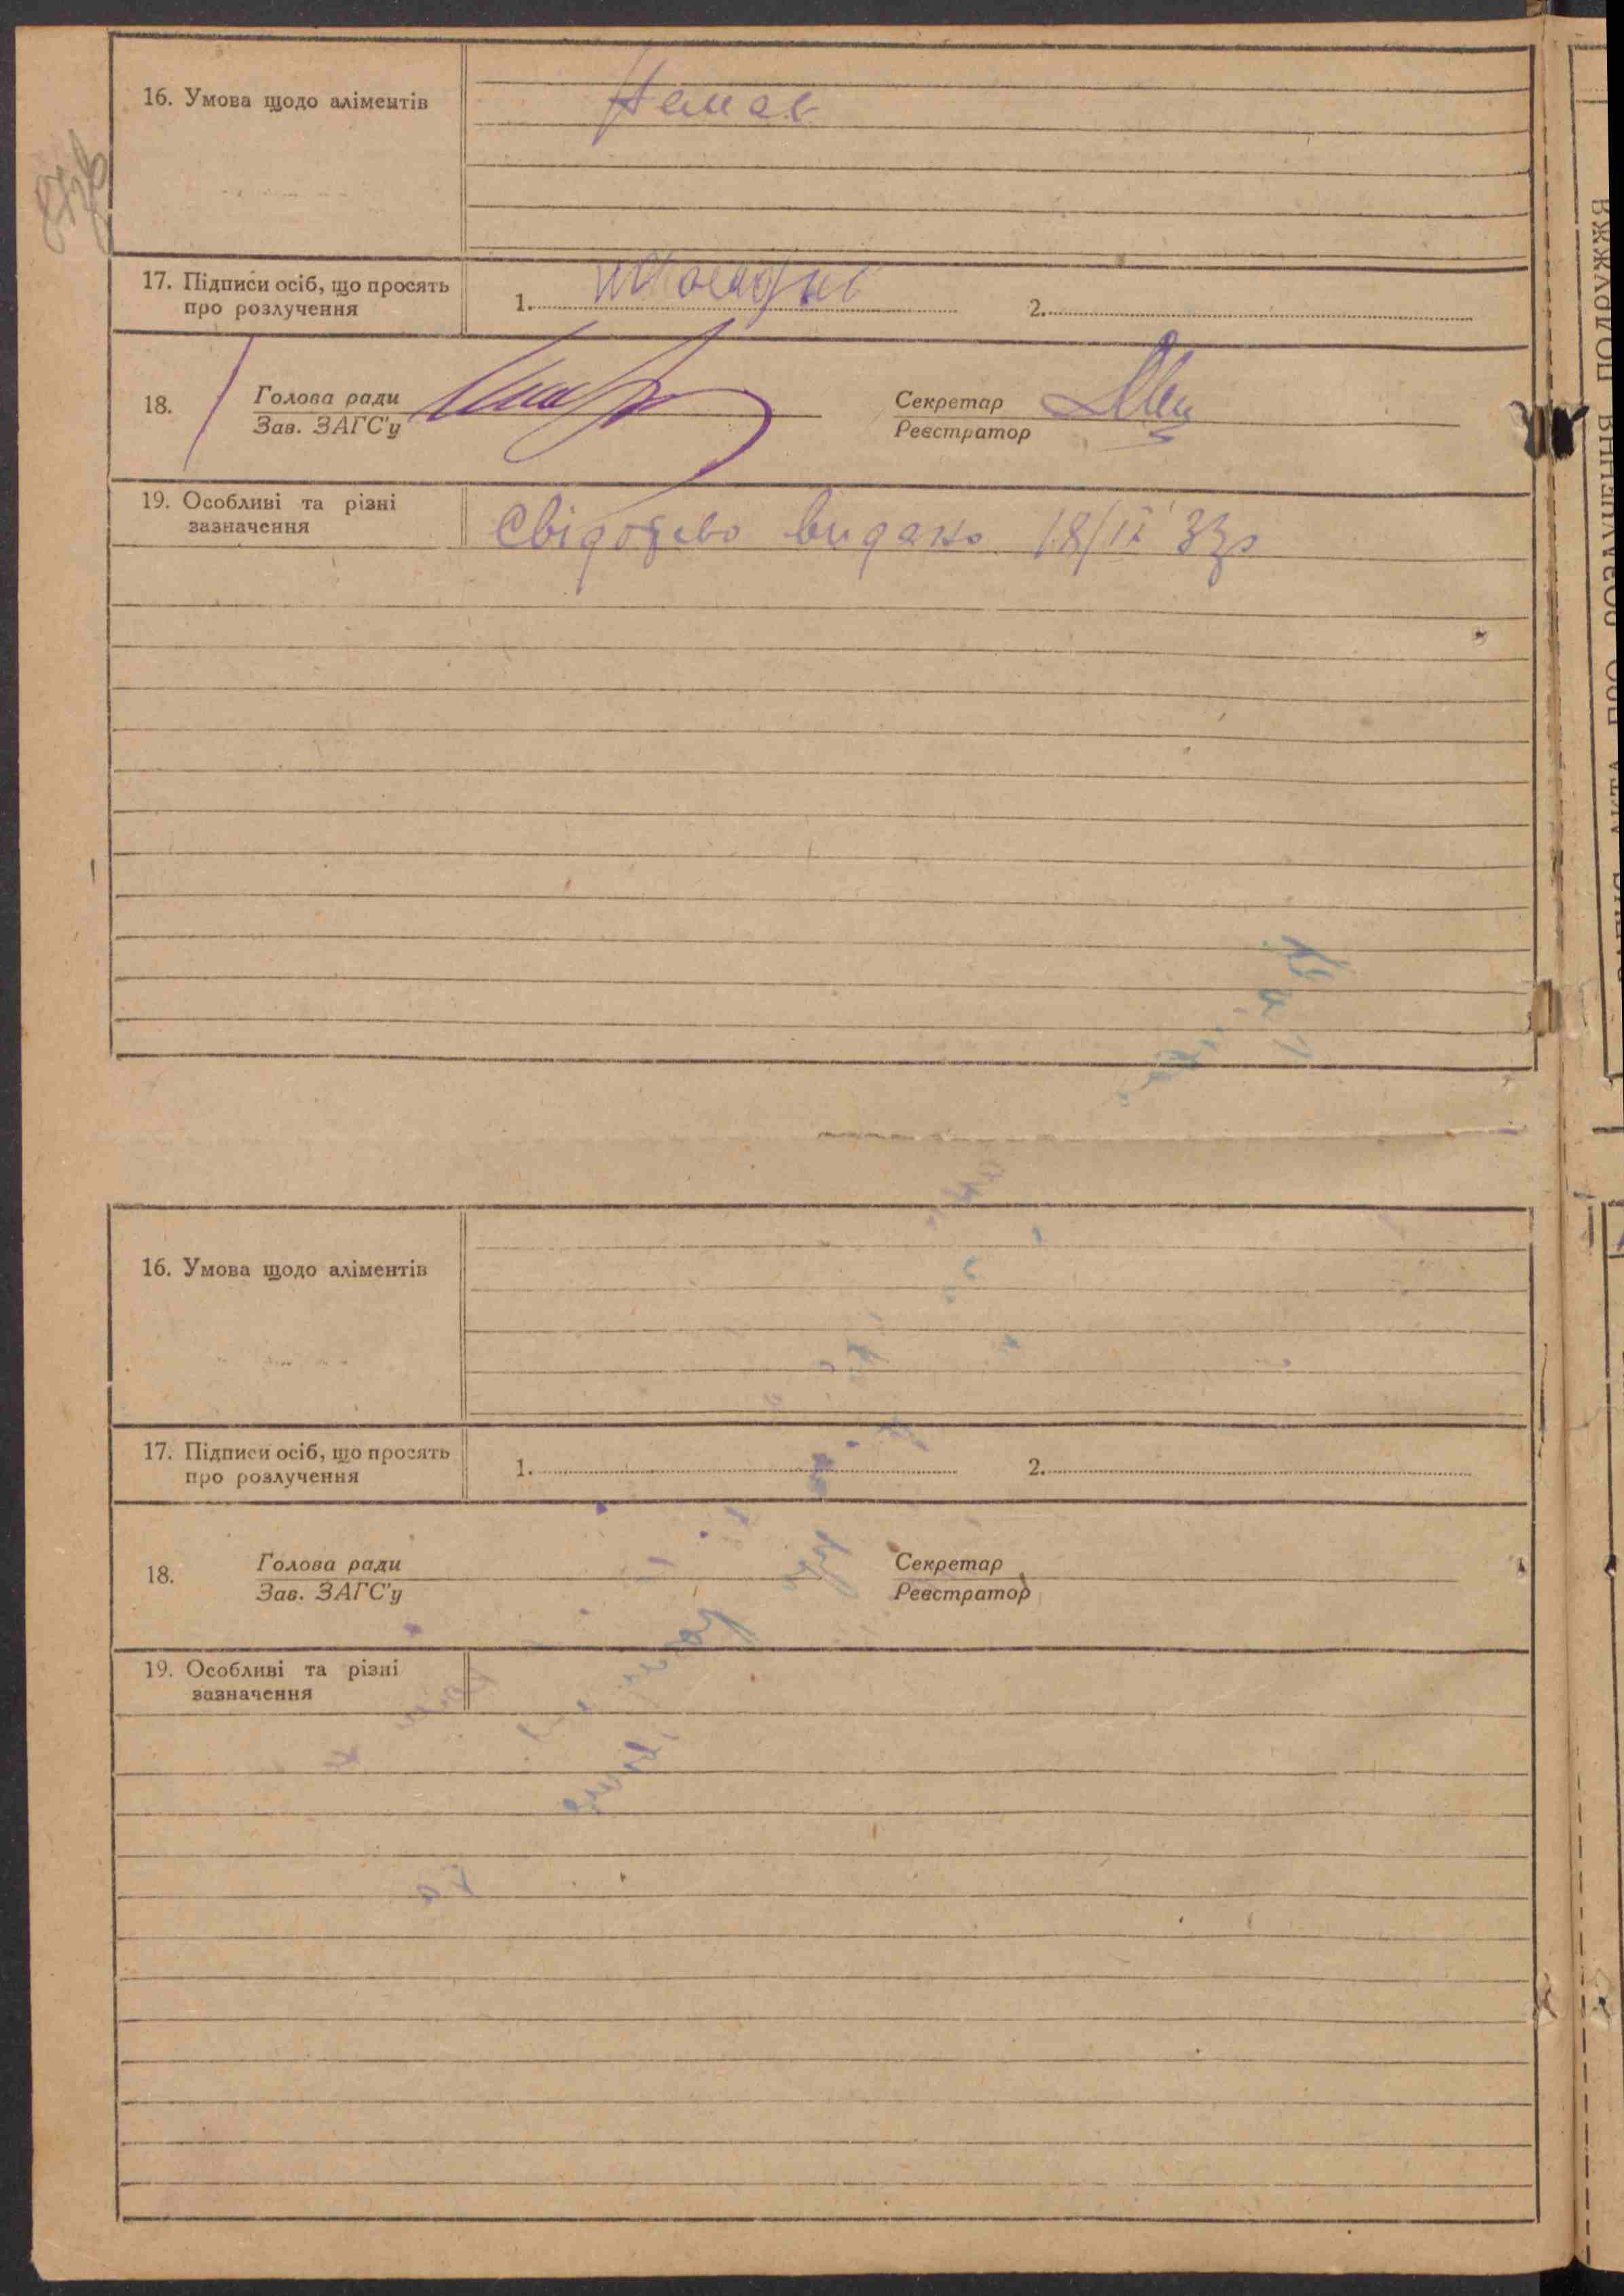 16. Умова щодо аліментів
Немає
17. Підписи осіб, що просять
про розлучення
1.
2.
18.
Голова ради
Зав. ЗАГС'у
Секретар
Реєстратор
19. Особливі та різні
зазначення
видано 18/IX 33р
16. Умова щодо аліментів
17. Підписи осіб, що просять
про розлучення
1.
2.
18.
Голова ради
Зав. ЗАГС'у
Секретар
Реєстратор
19. Особливі та різні
зазначення